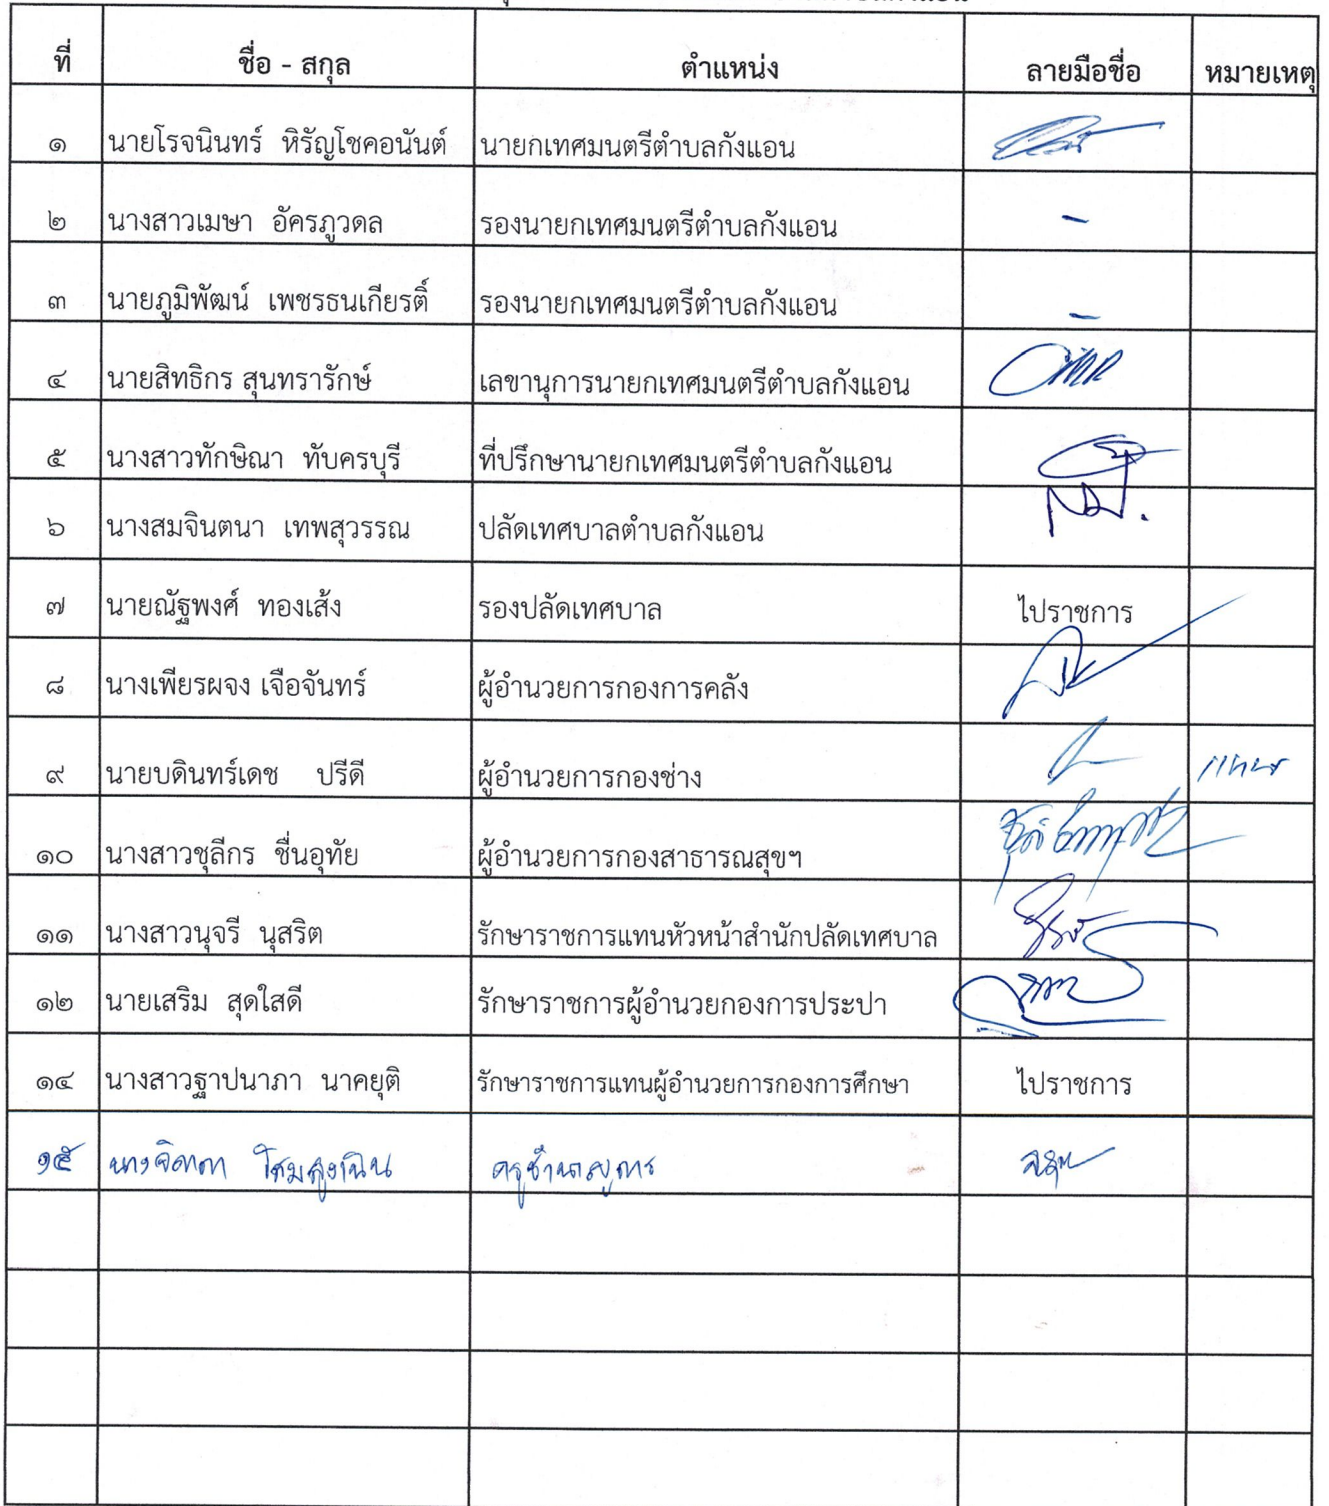 ที่ ชื่อ - สกุล ตำแหน่ง ลายมือชื่อ หมายเหตุ
๑ นายโรจนินทร์ หิรัญโชคอนันต์ นายกเทศมนตรีตำบลกังแอน
๒ นางสาวเมษา อัครภูวดล รองนายกเทศมนตรีตำบลกังแอน –
๓ นายภูมิพัฒน์ เพชรธนเกียรติ์ รองนายกเทศมนตรีตำบลกังแอน –
๔ นายสิทธิกร สุนทรารักษ์ เลขานุการนายกเทศมนตรีตำบลกังแอน
๕ นางสาวทักษิณา ทับครบุรี ที่ปรึกษานายกเทศมนตรีตำบลกังแอน
๖ นางสมจินตนา เทพสุวรรณ ปลัดเทศบาลตำบลกังแอน
๗ นายณัฐพงศ์ ทองเส้ง รองปลัดเทศบาล ไปราชการ
๘ นางเพียรผจง เจือจันทร์ ผู้อำนวยการกองการคลัง
๙ นายบดินทร์เดช ปรีดี ผู้อำนวยการกองช่าง แทน
๑๐ นางสาวชุลีกร ชื่นอุทัย ผู้อำนวยการกองสาธารณสุขฯ
๑๑ นางสาวนุจรี นุสริต รักษาราชการแทนหัวหน้าสำนักปลัดเทศบาล
๑๒ นายเสริม สุดใสดี รักษาราชการผู้อำนวยกองการประปา
๑๔ นางสาวฐาปนาภา นาคยุติ รักษาราชการแทนผู้อำนวยการกองการศึกษา ไปราชการ
๑๕ ครูชำนาญการ